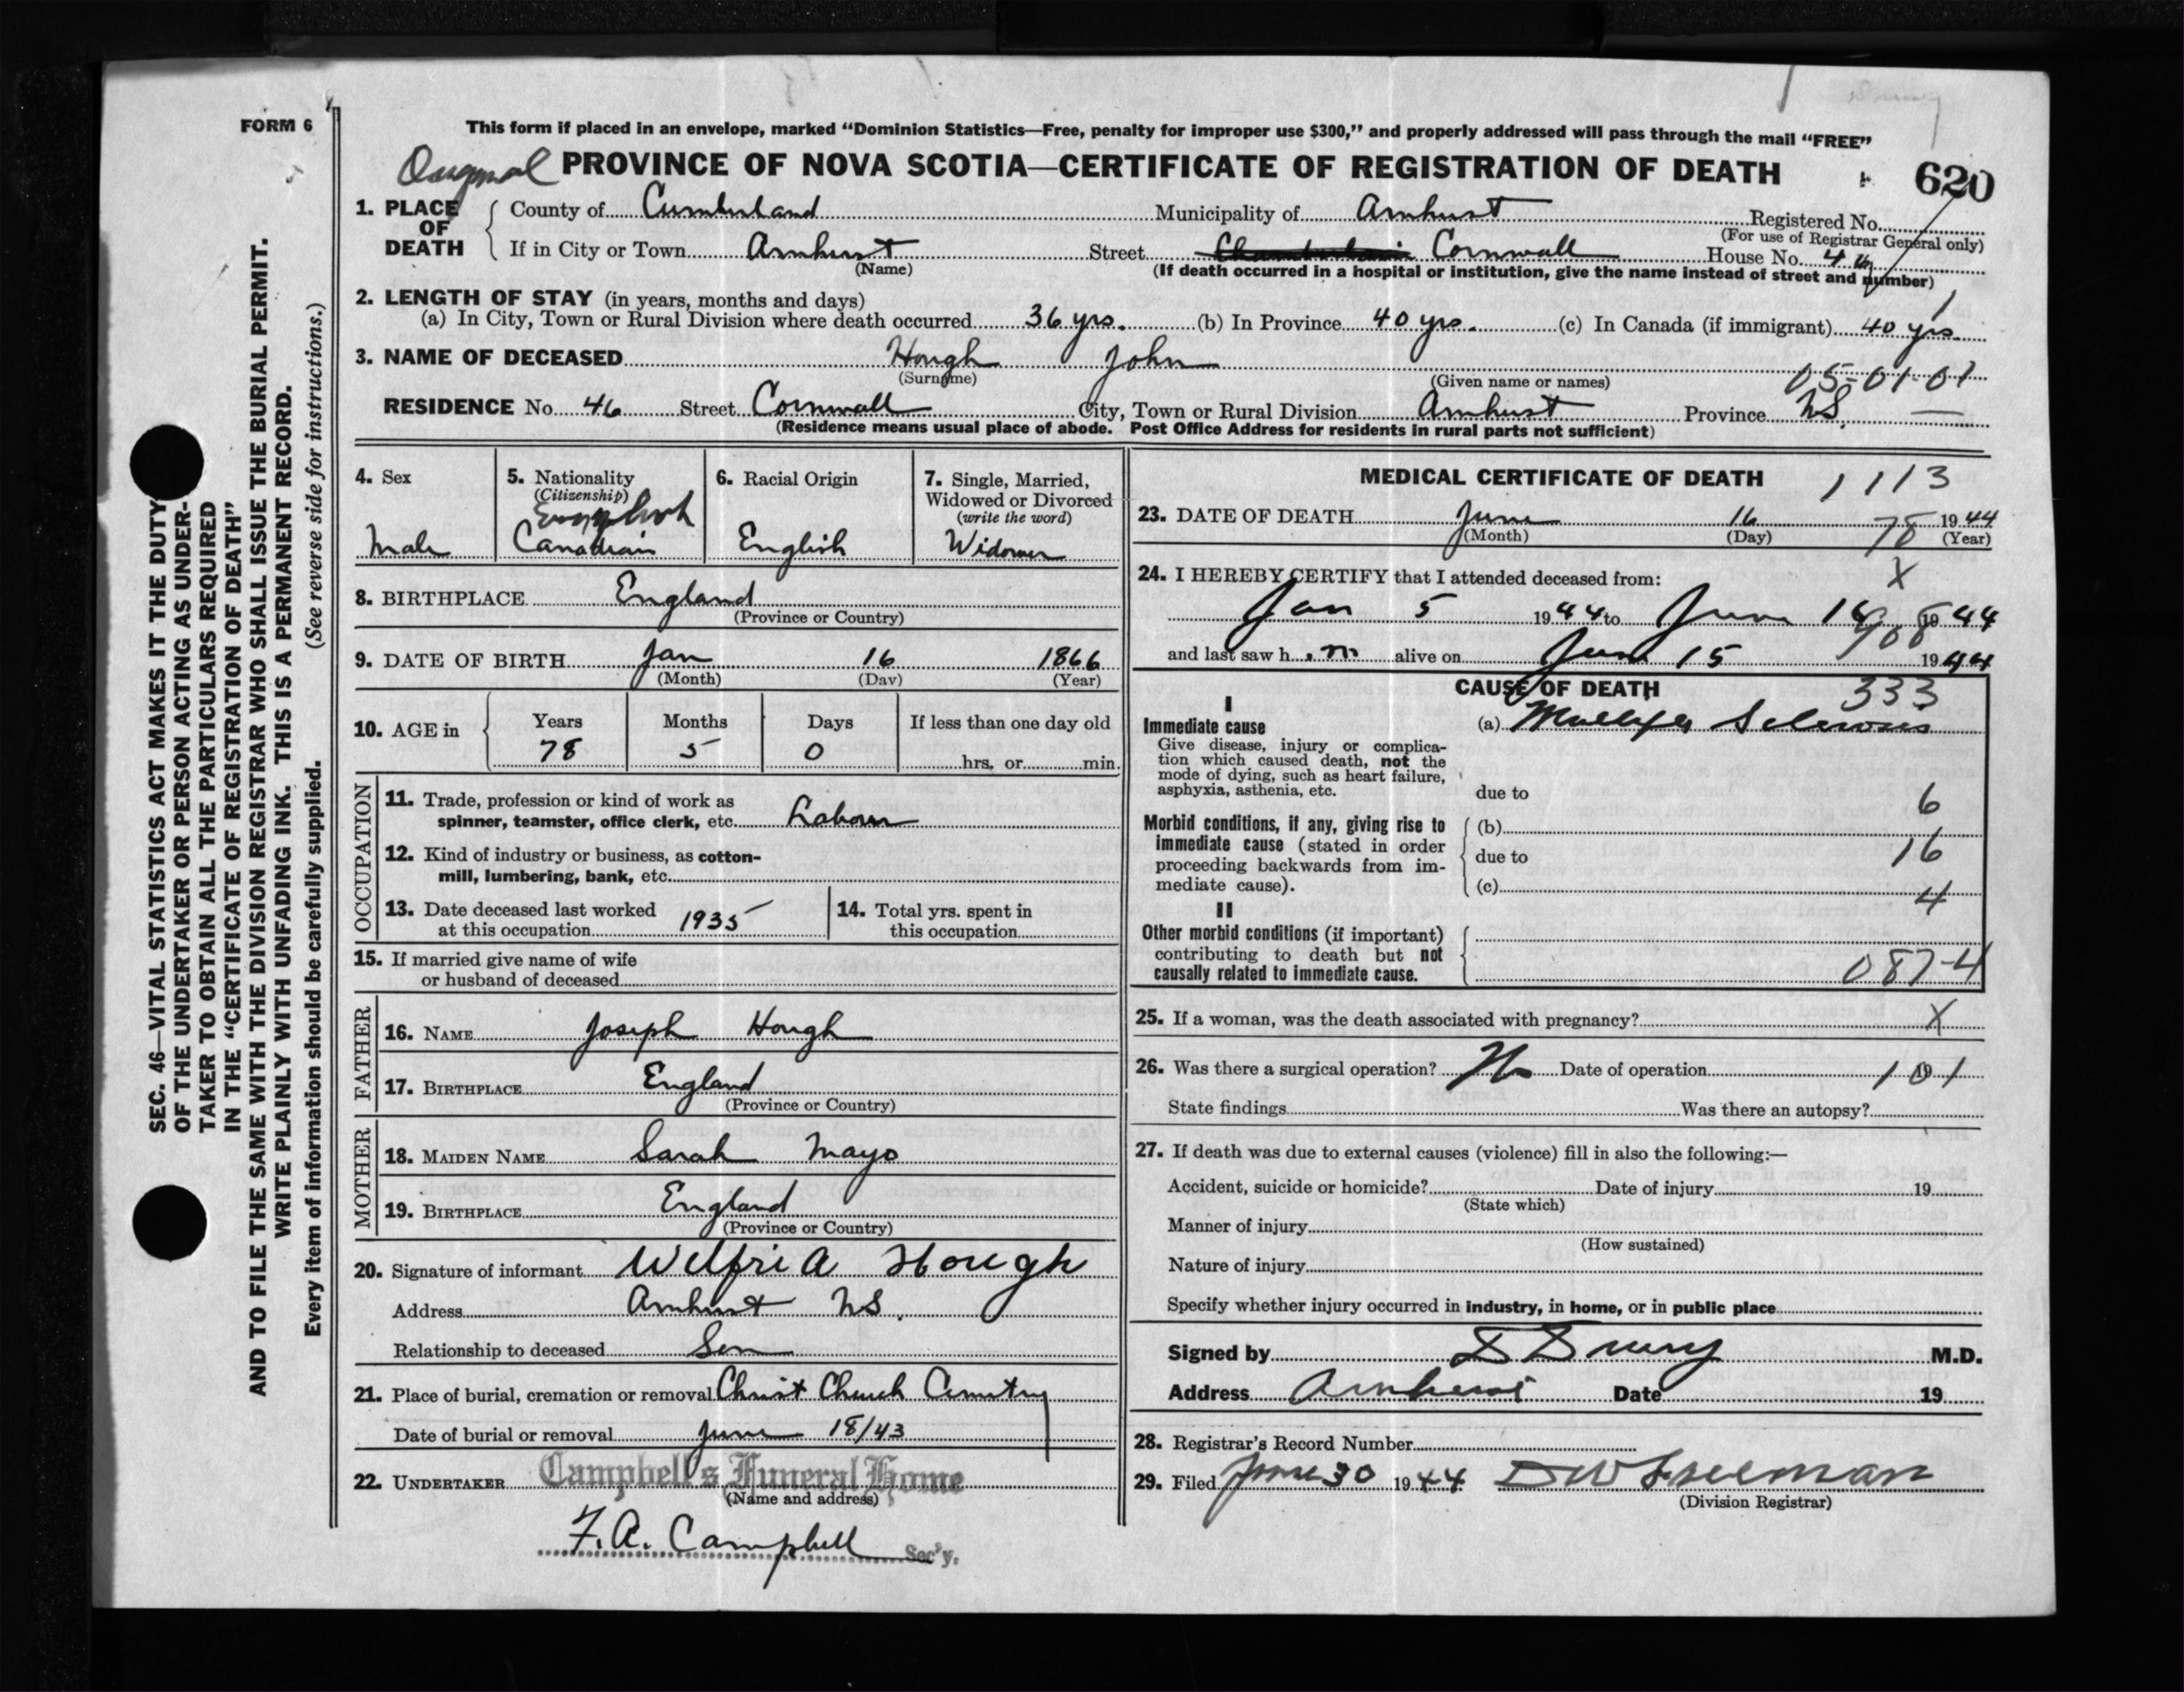 FORM 6
This form if placed in an envelope, marked "Dominion Statistics—Free, penalty for improper use $300," and properly addressed will pass through the mail "FREE"
PROVINCE OF NOVA SCOTIA—CERTIFICATE OF REGISTRATION OF DEATH
620
1. PLACE OF DEATH
County of Cumberland Municipality of Amherst Registered No.
(For use of Registrar General only)
If in City or Town Amherst Street Cornwall House No. 46
(Name) (If death occurred in a hospital or institution, give the name instead of street and number)
2. LENGTH OF STAY (in years, months and days)
(a) In City, Town or Rural Division where death occurred 36 yrs. (b) In Province 40 yrs. (c) In Canada (if immigrant) 40 yrs.
1
3. NAME OF DECEASED Hough John
(Surname) (Given name or names) 05-01-01
RESIDENCE No. 46 Street Cornwall City, Town or Rural Division Amherst Province NS.
(Residence means usual place of abode. Post Office Address for residents in rural parts not sufficient)
4. Sex
Male
5. Nationality
(Citizenship)
Canadian
6. Racial Origin
English
7. Single, Married,
Widowed or Divorced
(write the word)
Widower
8. BIRTHPLACE England
(Province or Country)
9. DATE OF BIRTH Jan 16 1866
(Month) (Day) (Year)
10. AGE in
Years Months Days If less than one day old
78 5 0
hrs. or min.
OCCUPATION
11. Trade, profession or kind of work as
spinner, teamster, office clerk, etc. Labour
12. Kind of industry or business, as cotton-
mill, lumbering, bank, etc.
13. Date deceased last worked
at this occupation 1935
14. Total yrs. spent in
this occupation
15. If married give name of wife
or husband of deceased
FATHER
16. NAME Joseph Hough
17. BIRTHPLACE England
(Province or Country)
MOTHER
18. MAIDEN NAME Sarah Mayo
19. BIRTHPLACE England
(Province or Country)
20. Signature of informant Wilfrid Hough
Address Amherst NS.
Relationship to deceased Son
21. Place of burial, cremation or removal Christ Church Cemetry
Date of burial or removal June 18/43
22. UNDERTAKER Campbell's Funeral Home
(Name and address)
F. A. Campbell Sec'y.
MEDICAL CERTIFICATE OF DEATH
1113
23. DATE OF DEATH June 16 1944
(Month) (Day) (Year)
78
24. I HEREBY CERTIFY that I attended deceased from:
X
Jan 5 1944 to June 16 1944
and last saw h im alive on June 15 1944
CAUSE OF DEATH
333
I
Immediate cause
(a) Multiple Sclerosis
Give disease, injury or complica-
tion which caused death, not the
mode of dying, such as heart failure,
asphyxia, asthenia, etc.
due to
6
Morbid conditions, if any, giving rise to
immediate cause (stated in order
proceeding backwards from im-
mediate cause).
(b)
due to
16
(c)
4
II
Other morbid conditions (if important)
contributing to death but not
causally related to immediate cause.
087-4
25. If a woman, was the death associated with pregnancy? X
26. Was there a surgical operation? No Date of operation 19
101
State findings Was there an autopsy?
27. If death was due to external causes (violence) fill in also the following:—
Accident, suicide or homicide? Date of injury 19
(State which)
Manner of injury
(How sustained)
Nature of injury
Specify whether injury occurred in industry, in home, or in public place
Signed by M.D.
Address Amherst Date 19
28. Registrar's Record Number
29. Filed June 30 1944 D W Freeman
(Division Registrar)
SEC. 46—VITAL STATISTICS ACT MAKES IT THE DUTY
OF THE UNDERTAKER OR PERSON ACTING AS UNDER-
TAKER TO OBTAIN ALL THE PARTICULARS REQUIRED
IN THE "CERTIFICATE OF REGISTRATION OF DEATH"
AND TO FILE THE SAME WITH THE DIVISION REGISTRAR WHO SHALL ISSUE THE BURIAL PERMIT.
WRITE PLAINLY WITH UNFADING INK. THIS IS A PERMANENT RECORD.
Every item of information should be carefully supplied. (See reverse side for instructions.)